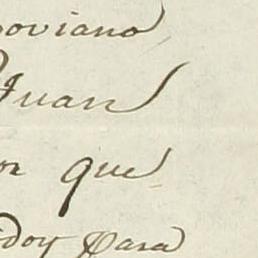 oviano
Juan
or que
doy para